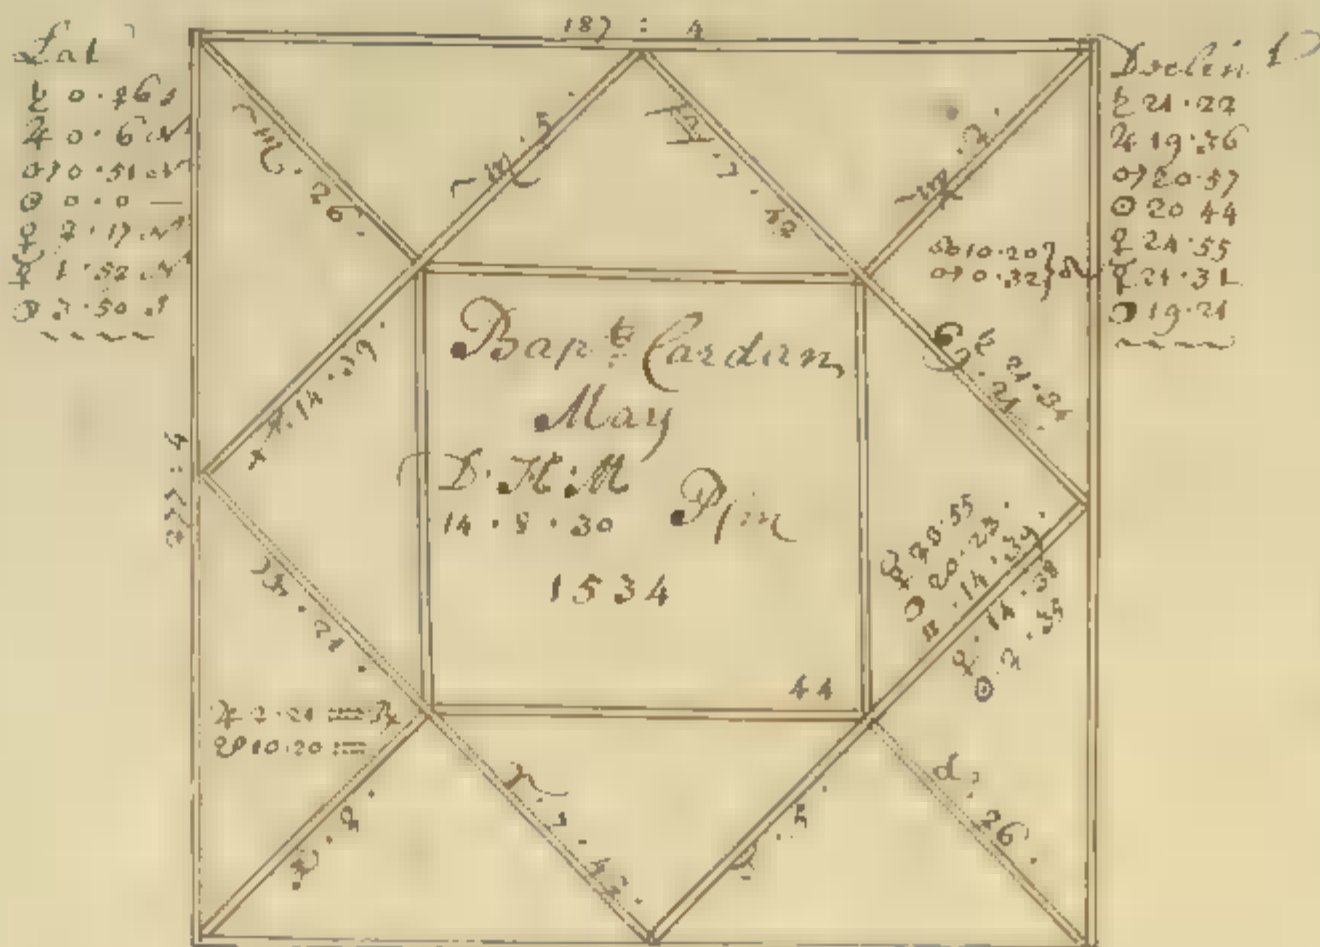 187 : 4
Lat
♄ 0 · 46 S
♃ 0 · 6 N
♂ 0 · 51 N
☉ 0 · 0 —
♀ 2 · 17 N
☿ 1 · 52 N
☽ 3 · 50 S
Declin
♄ 21 · 22
♃ 19 · 36
♂ 20 · 57
☉ 20 44
♀ 24 · 55
☿ 21 · 31
☽ 19 · 21
♏ · 26
♏ · 5
♍ · 2
☊ 10 · 20
♂ 0 · 32 } ♌
♐ · 14 · 39
♋ · 21
♄ 21 · 34
Bapte Cardan
May
D · H : M
14 · 8 · 30 P m
1534
♀ 20 · 55
☽ 20 · 23
♊ · 14 · 39
☿ · 14 · 38
☉ · 2 · 35
44
277 : 4
♑ · 21
♃ 2 · 21 ♒ ℞
☋ 10 · 20 ♒
♉ · 5
♉ · 26